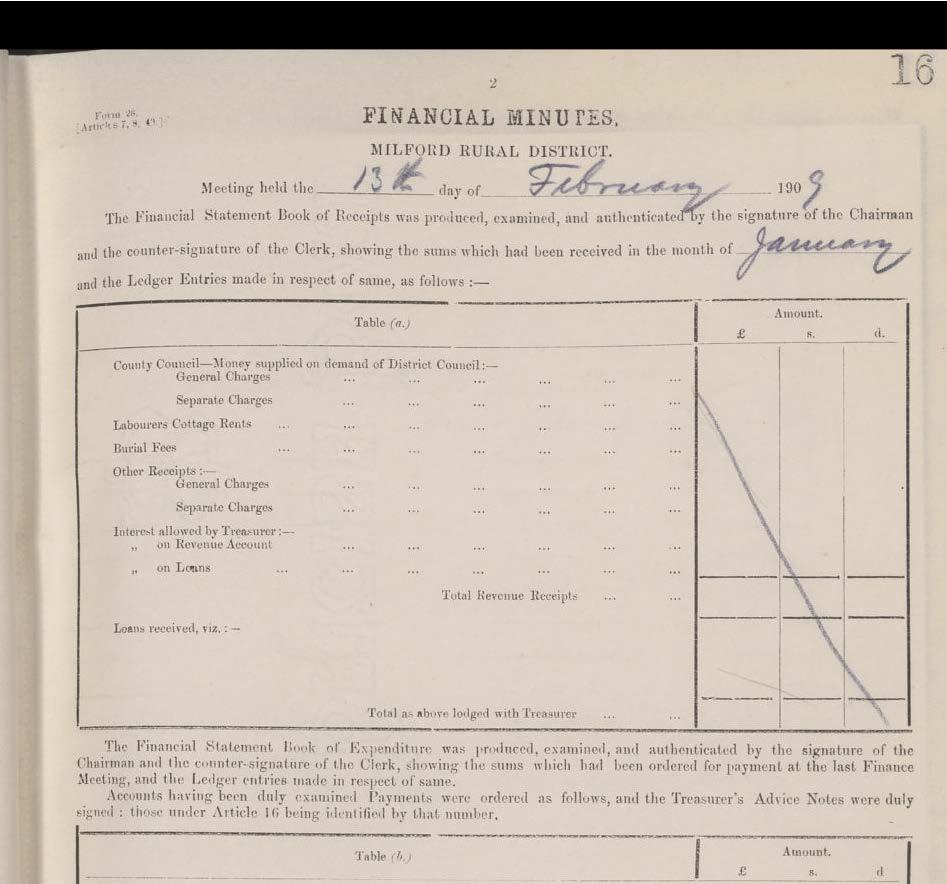 16
2
Form 26.
[Articles 7, 8, 49.]
FINANCIAL MINUTES.
MILFORD RURAL DISTRICT.
Meeting held the 13th day of February 1909
The Financial Statement Book of Receipts was produced, examined, and authenticated by the signature of the Chairman
and the counter-signature of the Clerk, showing the sums which had been received in the month of January
and the Ledger Entries made in respect of same, as follows :—
Table (a.)
Amount.
£ s. d.
County Council—Money supplied on demand of District Council :—
General Charges ... ... ... ... ... ...
Separate Charges ... ... ... ... ... ...
Labourers Cottage Rents ... ... ... ... ... ... ...
Burial Fees ... ... ... ... ... ... ...
Other Receipts :—
General Charges ... ... ... ... ... ...
Separate Charges ... ... ... ... ... ...
Interest allowed by Treasurer :—
„ on Revenue Account ... ... ... ... ... ...
„ on Loans ... ... ... ... ... ... ...
Total Revenue Receipts ... ...
Loans received, viz. : —
Total as above lodged with Treasurer ... ...
The Financial Statement Book of Expenditure was produced, examined, and authenticated by the signature of the
Chairman and the counter-signature of the Clerk, showing the sums which had been ordered for payment at the last Finance
Meeting, and the Ledger entries made in respect of same.
Accounts having been duly examined Payments were ordered as follows, and the Treasurer's Advice Notes were duly
signed : those under Article 16 being identified by that number.
Table (b.)
Amount.
£ s. d